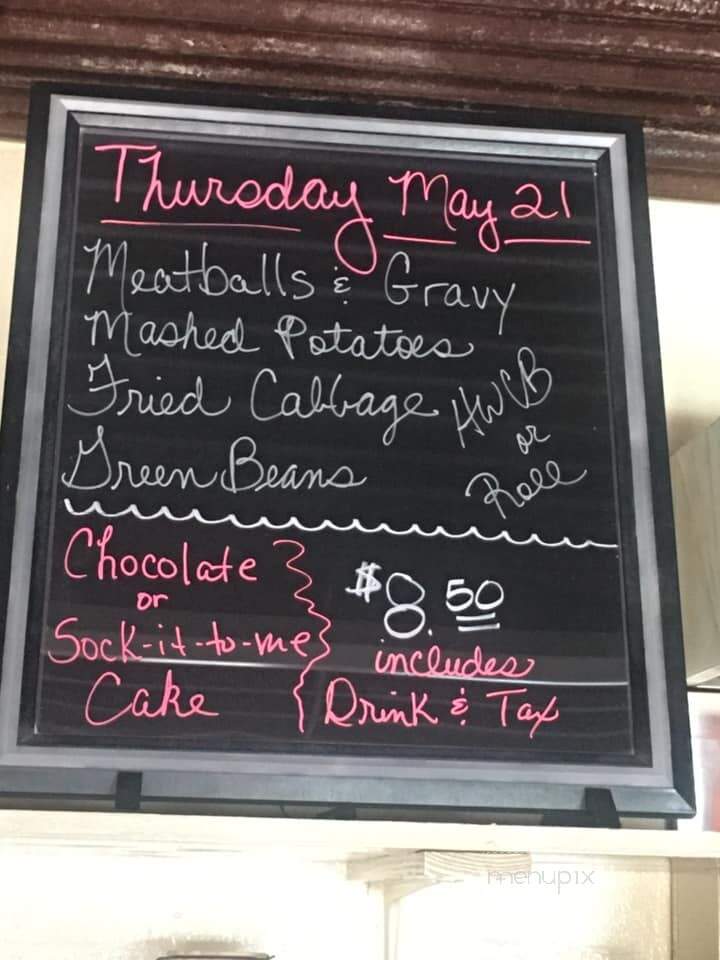 Thursday May 21
Meatballs & Gravy
Mashed Potatoes
Fried Cabbage
Green Beans
HWCB
or
Roll
Chocolate
or
Sock-it-to-me
Cake
$8.50
includes
Drink & Tax
menupix